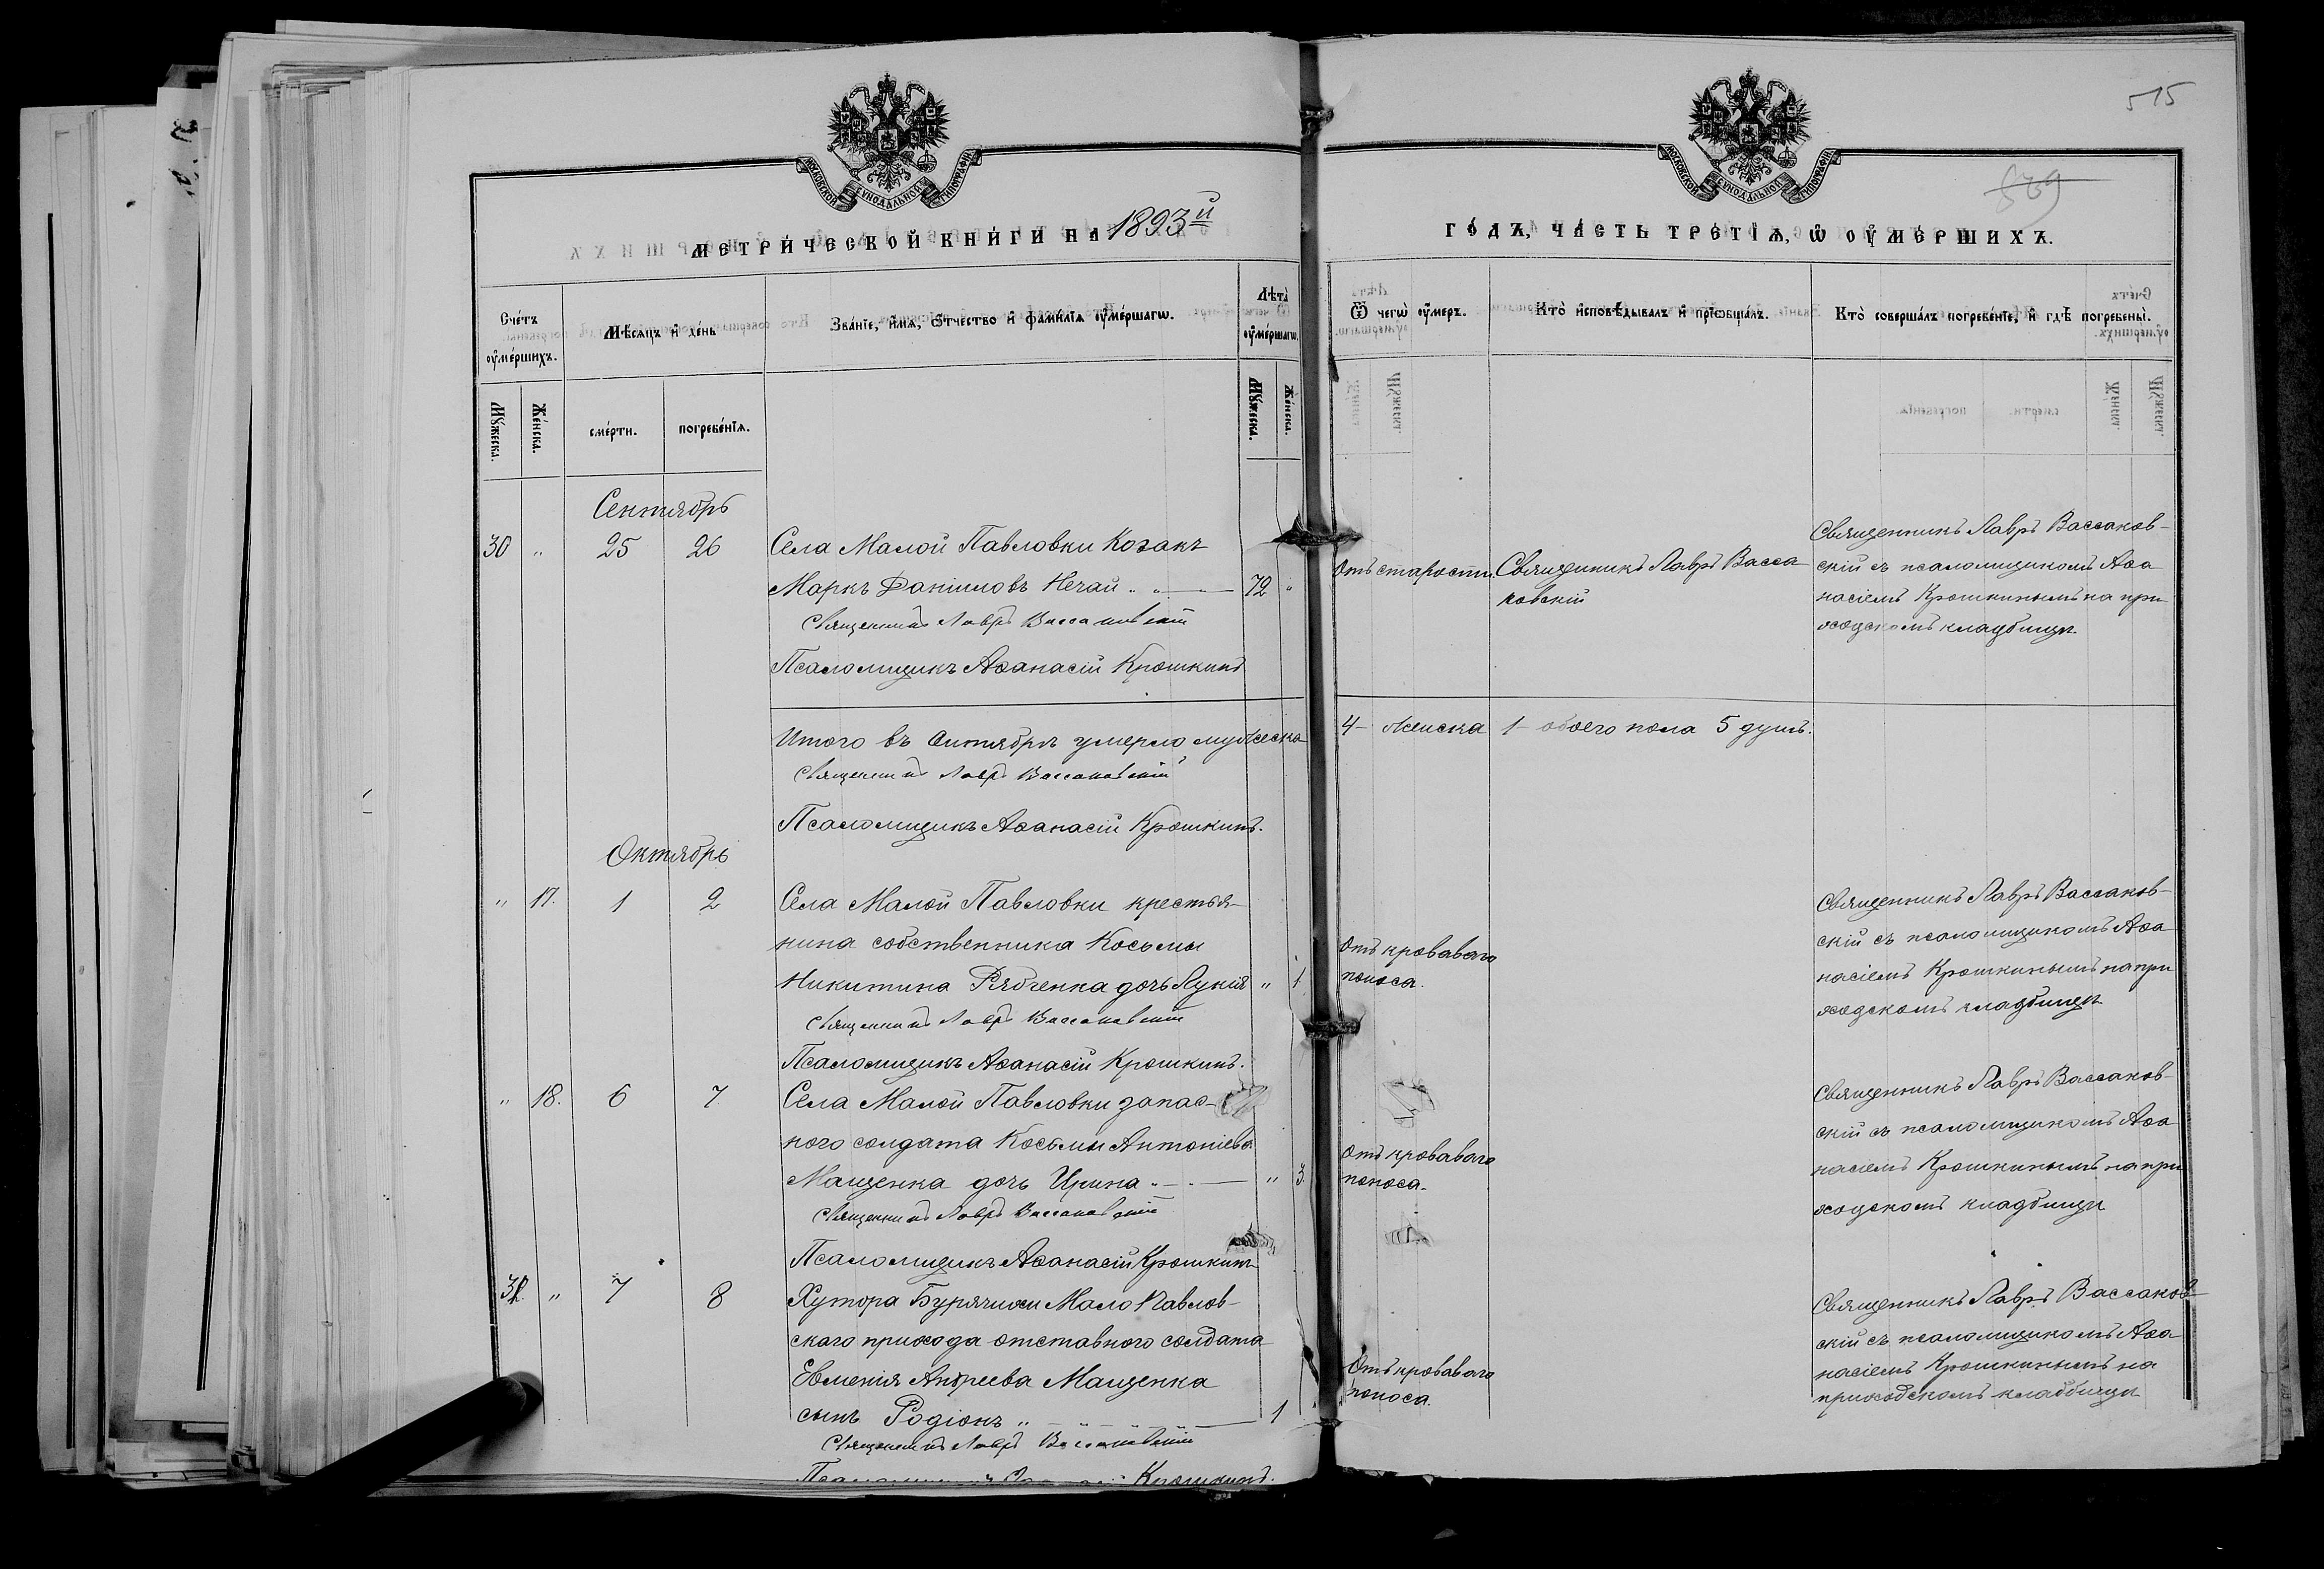 515
839
МОСКОВСКОЙ СѴНОДАЛЬНОЙ ТИПОГРАФІИ
МОСКОВСКОЙ СѴНОДАЛЬНОЙ ТИПОГРАФІИ
МЕТРИ́ЧЕСКОЙ КНИ́ГИ НА 1893й
ГО́ДЪ, ЧА́СТЬ ТРЕ́ТІѦ, Ѡ ОУМЕ́РШИХЪ.
Сче́тъ оумершихъ.
Мѣ́сѧцъ и де́нь
Зва́нїе, и́мѧ, о́тчество и фами́лїѧ оуме́ршагѡ.
Лѣта̀ оуме́ршагѡ.
Ѿ чегѡ̀ оу́меръ.
Кто̀ исповѣ́дывалъ и прїѡбща́лъ.
Кто̀ соверша́лъ погребе́нїе, и гдѣ̀ погребены̀.
Му́жеска.
Же́нска.
сме́рти.
погребе́нїѧ.
Му́жеска.
Же́нска.
Сентябрь
30 " 25 26 Села Малой Павловки Козакъ
Маркъ Даніиловъ Нечай 72 "
Священникъ Лавръ Вассаковскій
Псаломщикъ Аѳанасій Крошкинъ
Отъ старости.
Священникъ Лавръ Васса
ковскій
Священникъ Лавръ Вассаков-
скій съ псаломщикомъ Аѳа
насіемъ Крошкинымъ на при
ходскомъ кладбищѣ.
Итого въ Сентябрѣ умерло мужеска 4 – женска 1 – обоего пола 5 душъ.
Священникъ Лавръ Вассаковскій
Псаломщикъ Аѳанасій Крошкинъ.
Октябрь
" 17. 1 2 Села Малой Павловки крестья-
нина собственника Косьмы
Никитина Рябченка дочь Лукія " 1
Священникъ Лавръ Вассаковскій
Псаломщикъ Аѳанасій Крошкинъ.
Отъ кроваваго
поноса.
Священникъ Лавръ Вассаков-
скій съ псаломщикомъ Аѳа
насіемъ Крошкинымъ на при
ходскомъ кладбищѣ
" 18. 6 7 Села Малой Павловки запас-
ного солдата Косьмы Антоніева
Мащенка дочь Ирина " 3.
Священникъ Лавръ Вассаковскій
Псаломщикъ Аѳанасій Крошкинъ
Отъ кроваваго
поноса.
Священникъ Лавръ Вассаков-
скій съ псаломщикомъ Аѳа
насіемъ Крошкинымъ на при
ходскомъ кладбищѣ
31. " 7 8 Хутора Мало Павлов-
скаго прихода отставного солдата
Евменія Андреева Мащенка
сынъ Родіонъ " 1
Священникъ Лавръ Вассаковскій
Крошкинъ.
Отъ кроваваго
поноса.
Священникъ Лавръ Вассаков-
скій съ псаломщикомъ Аѳа-
насіемъ Крошкинымъ на
приходскомъ кладбищѣ